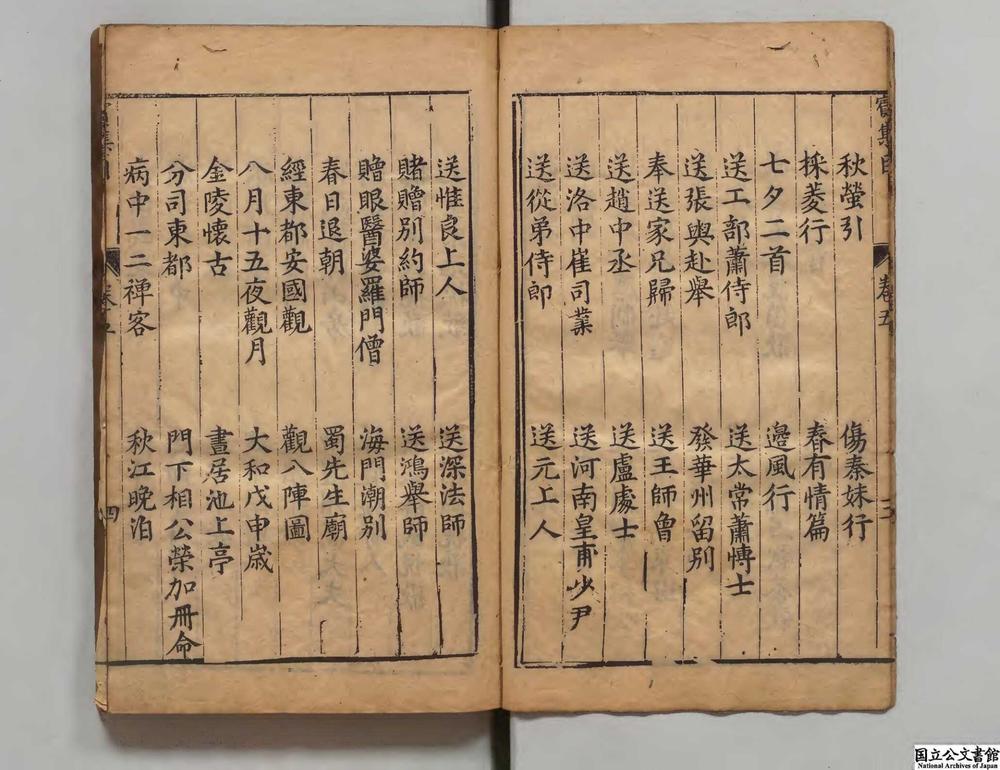 秋螢引　傷秦姝行
採菱行　春有情篇
七夕二首　邊風行
送工部蕭侍郎　送太常蕭博士
送張輿赴舉　發華州留別
奉送家兄歸　送王師魯
送趙中丞　送盧處士
送洛中崔司業　送河南皇甫少尹
送從弟侍郎　送元上人
送惟良上人　送深法師
賭贈別約師　送鴻舉師
贈眼醫婆羅門僧　海門潮別
春日退朝　蜀先生廟
經東都安國觀　觀八陣圖
八月十五夜觀月　大和戊申歲
金陵懷古　晝居池上亭
分司東都　門下相公榮加冊命
病中一二禪客　秋江晚泊
卷五
四
国立公文書館
National Archives of Japan